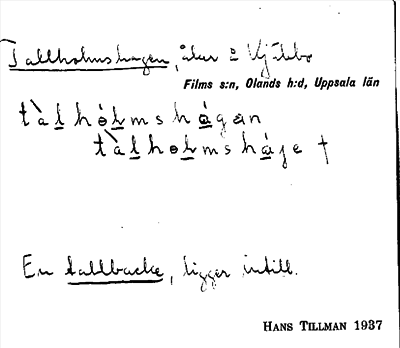 Tallholmshagen, åker i Vjäbbo
Films s:n, Olands h:d, Uppsala län
tàlhòlmshágan
tàlholmsháge †
En tallbacke, ligger intill.
HANS TILLMAN 1937